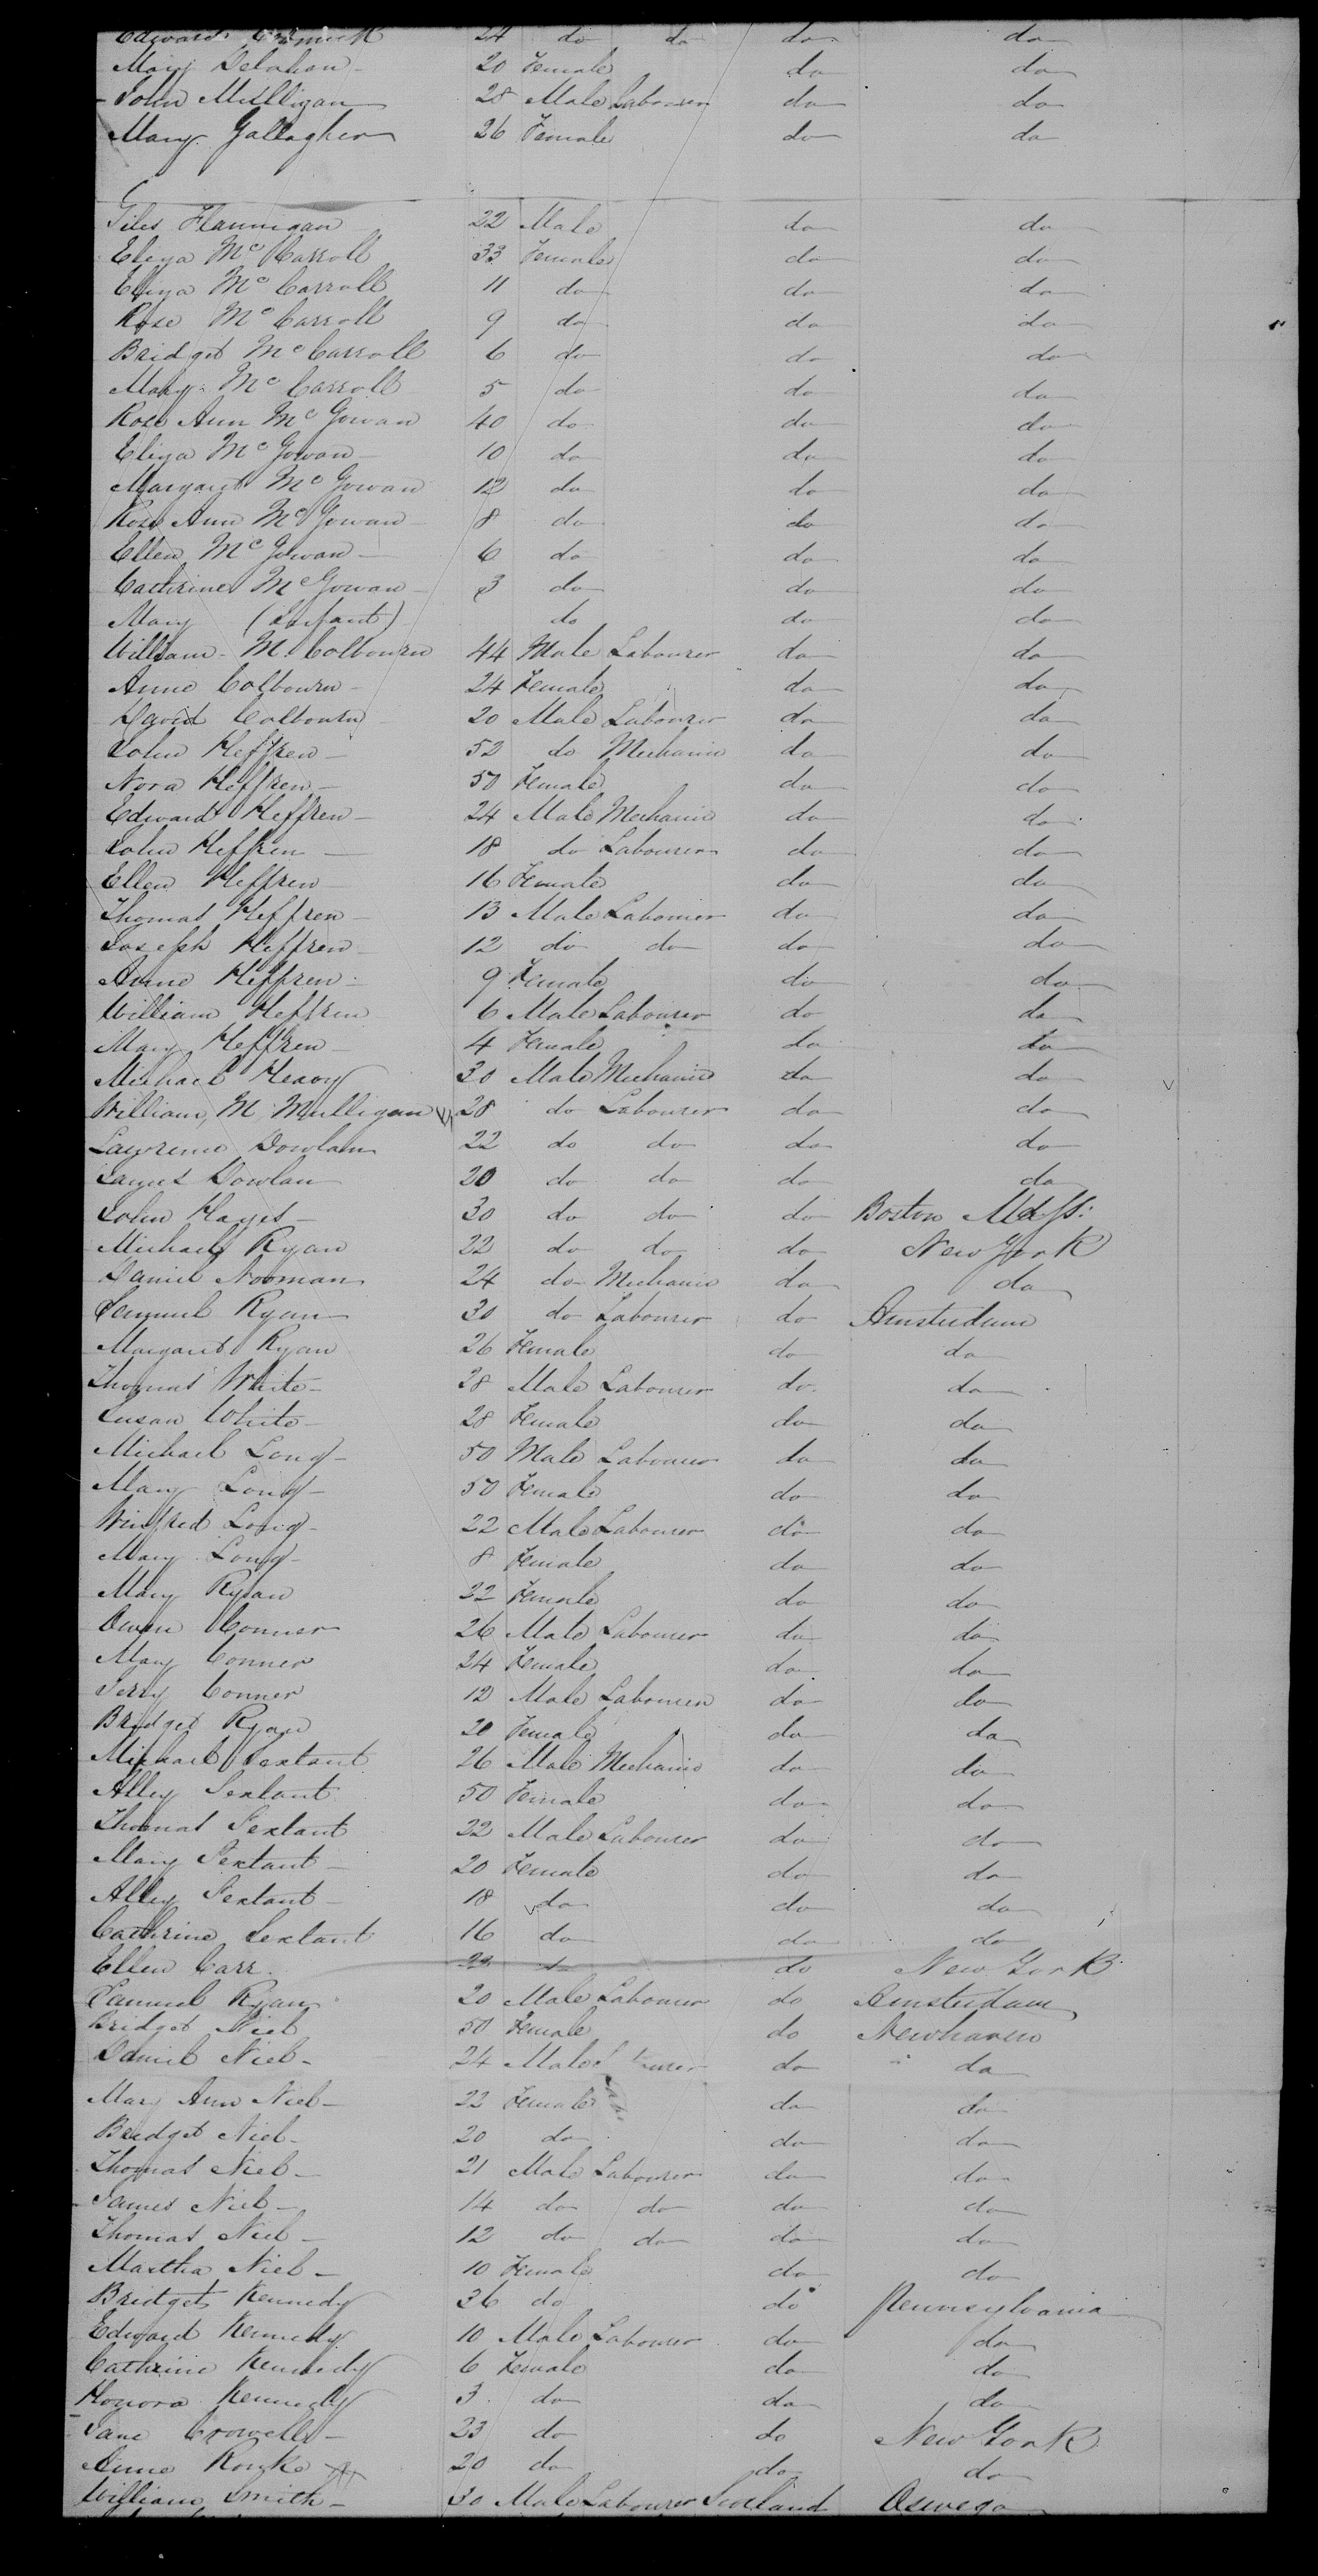 Edward 24 do do do do
Mary Delahan 20 Female do do
John Milligan 28 Male Labourer do do
Mary Gallagher 26 Female do do
Giles Flannigan 22 Male do do
Eliza Mc Carroll 33 Female do do
Eliza Mc Carroll 11 do do do
Rose Mc Carroll 9 do do do
Bridget Mc Carroll 6 do do do
Mary Mc Carroll 5 do do do
Rose Ann Mc Gowan 40 do do do
Eliza Mc Gowan 10 do do do
Margaret Mc Gowan 12 do do do
Rose Ann Mc Gowan 8 do do do
Ellen Mc Gowan 6 do do do
Cathrine Mc Gowan 3 do do do
Mary (Infant) do do do
William M. Colbourn 44 Male Labourer do do
Anne Colbourn 24 Female do do
David Colbourn 20 Male Labourer do do
John Heffren 52 do Mechanic do do
Nora Heffren 50 Female do do
Edward Heffren 24 Male Mechanic do do
John Heffren 18 do Labourer do do
Ellen Heffren 16 Female do do
Thomas Heffren 13 Male Labourer do do
Joseph Heffren 12 do do do do
Anne Heffren 9 Female do do
William Heffren 6 Male Labourer do do
Mary Heffren 4 Female do do
Michael Heavy 30 Male Mechanic do do
William M Mulligan 28 do Labourer do do
Lawrence Dowlan 22 do do do do
James Dowlan 20 do do do do
John Hayes 30 do do do Boston Mass:
Michael Ryan 22 do do do New York
Daniel Nooman 24 do Mechanic do do
Samuel Ryan 30 do Labourer do Amsterdam
Margaret Ryan 26 Female do do
Thomas White 28 Male Labourer do do
Susan White 28 Female do do
Michael Long 50 Male Labourer do do
Mary Long 50 Female do do
Winfred Long 22 Male Labourer do do
Mary Long 8 Female do do
Mary Ryan 22 Female do do
Owen Conner 26 Male Labourer do do
Mary Conner 24 Female do do
Terry Conner 12 Male Labourer do do
Bridget Ryan 20 Female do do
Michael Sextant 26 Male Mechanic do do
Alley Sextant 50 Female do do
Thomas Sextant 22 Male Labourer do do
Mary Sextant 20 Female do do
Alley Sextant 18 do do do
Cathrine Sextant 16 do do do
Ellen Carr 22 do do New York
Samuel Ryan 20 Male Labourer do Amsterdam
Bridget Niel 50 Female do Newhaven
Daniel Niel 24 Male Labourer do do
Mary Ann Niel 22 Female do do
Bridget Niel 20 do do do
Thomas Niel 21 Male Labourer do do
James Niel 14 do do do do
Thomas Niel 12 do do do do
Martha Niel 10 Female do do
Bridget Kennedy 36 do do Pennsylvania
Edward Kennedy 10 Male Labourer do do
Cathrine Kennedy 6 Female do do
Honora Kennedy 3 do do do
Jane Crowell 23 do do New York
Anne Rourke 20 do do do
William Smith 30 Male Labourer Scotland Oswego